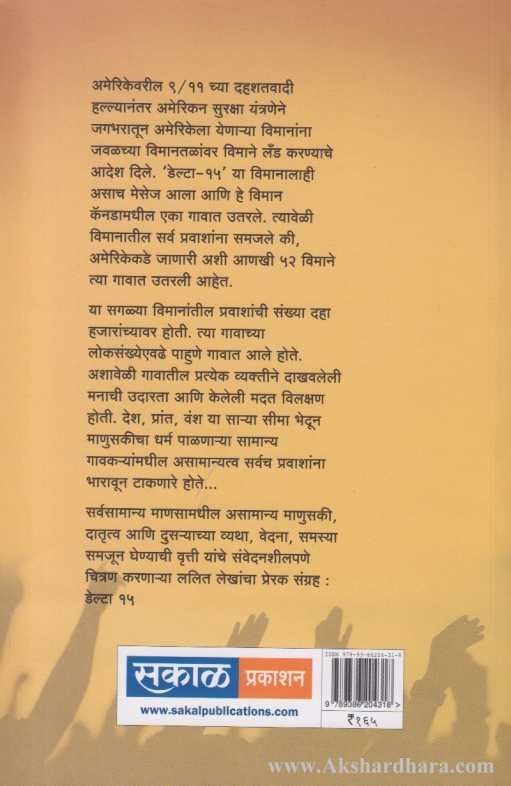 अमेरिकेवरील ९/११ च्या दहशतवादी
हल्ल्यानंतर अमेरिकन सुरक्षा यंत्रणेने
जगभरातून अमेरिकेला येणाऱ्या विमानांना
जवळच्या विमानतळांवर विमाने लँड करण्याचे
आदेश दिले. ‘डेल्टा-१५’ या विमानालाही
असाच मेसेज आला आणि हे विमान
कॅनडामधील एका गावात उतरले. त्यावेळी
विमानातील सर्व प्रवाशांना समजले की,
अमेरिकेकडे जाणारी अशी आणखी ५२ विमाने
त्या गावात उतरली आहेत.
या सगळ्या विमानांतील प्रवाशांची संख्या दहा
हजारांच्यावर होती. त्या गावाच्या
लोकसंख्येएवढे पाहुणे गावात आले होते.
अशावेळी गावातील प्रत्येक व्यक्तीने दाखवलेली
मनाची उदारता आणि केलेली मदत विलक्षण
होती. देश, प्रांत, वंश या साऱ्या सीमा भेदून
माणुसकीचा धर्म पाळणाऱ्या सामान्य
गावकऱ्यांमधील असामान्यत्व सर्वच प्रवाशांना
भारावून टाकणारे होते...
सर्वसामान्य माणसामधील असामान्य माणुसकी,
दातृत्व आणि दुसऱ्याच्या व्यथा, वेदना, समस्या
समजून घेण्याची वृत्ती यांचे संवेदनशीलपणे
चित्रण करणाऱ्या ललित लेखांचा प्रेरक संग्रह :
डेल्टा १५
सकाळ प्रकाशन
www.sakalpublications.com
ISBN 978-93-86204-31-8
9 789386 204318
₹१६५
www.Akshardhara.com